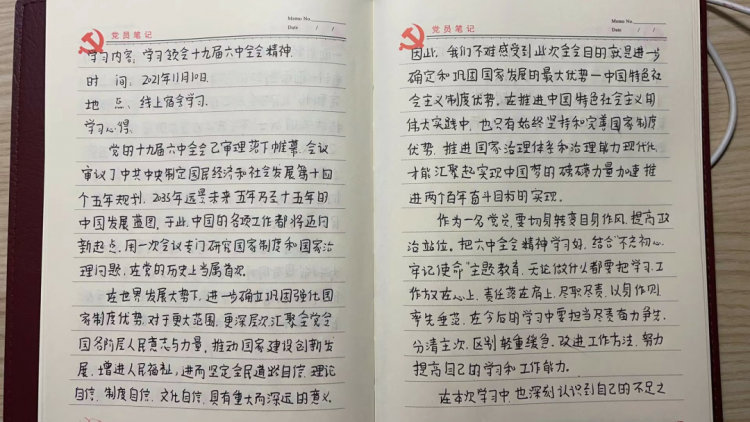 党员笔记
Memo No.
Date / /
学习内容：学习领会十九届六中全会精神.
时 间：2021年11月10日.
地 点：线上宿舍学习.
学习心得：
党的十九届六中全会已审理落下帷幕，会议
审议了中共中央制定国民经济和社会发展第十四
个五年规划，2035年远景未来五年乃至十五年的
中国发展蓝图，于此中国的各项工作都将迈向
新起点，用一次会议专门研究国家制度和国家治
理问题，在党的历史上当属首次.
在世界发展大势下，进一步确立巩固强化国
家制度优势，对于更大范围，更深层次汇聚全党全
国各阶层人民意志与力量，推动国家建设创新发
展，增进人民福祉，进而坚定全民道路自信，理论
自信，制度自信，文化自信，具有重大而深远的意义.
党员笔记
Memo No.
Date / /
因此，我们不难感受到此次全会目的就是进一步
确定和巩固国家发展的最大优势—中国特色社
会主义制度优势，在推进中国特色社会主义的
伟大实践中，也只有始终坚持和完善国家制度
优势，推进国家治理体系和治理能力现代化
才能汇聚起实现中国梦的磅礴力量加速推
进两个百年奋斗目标的实现.
作为一名党员，要切身转变自身作风，提高政
治站位，把六中全会精神学习好，结合“不忘初心，
牢记使命”主题教育，无论做什么都要把学习、工
作放在心上，责任落在肩上，尽职尽责，以身作则，
率先垂范，在今后的学习中要担当尽责奋力争先，
分清主次，区别轻重缓急，改进工作方法，努力
提高自己的学习和工作能力.
在本次学习中，也深刻认识到自己的不足之